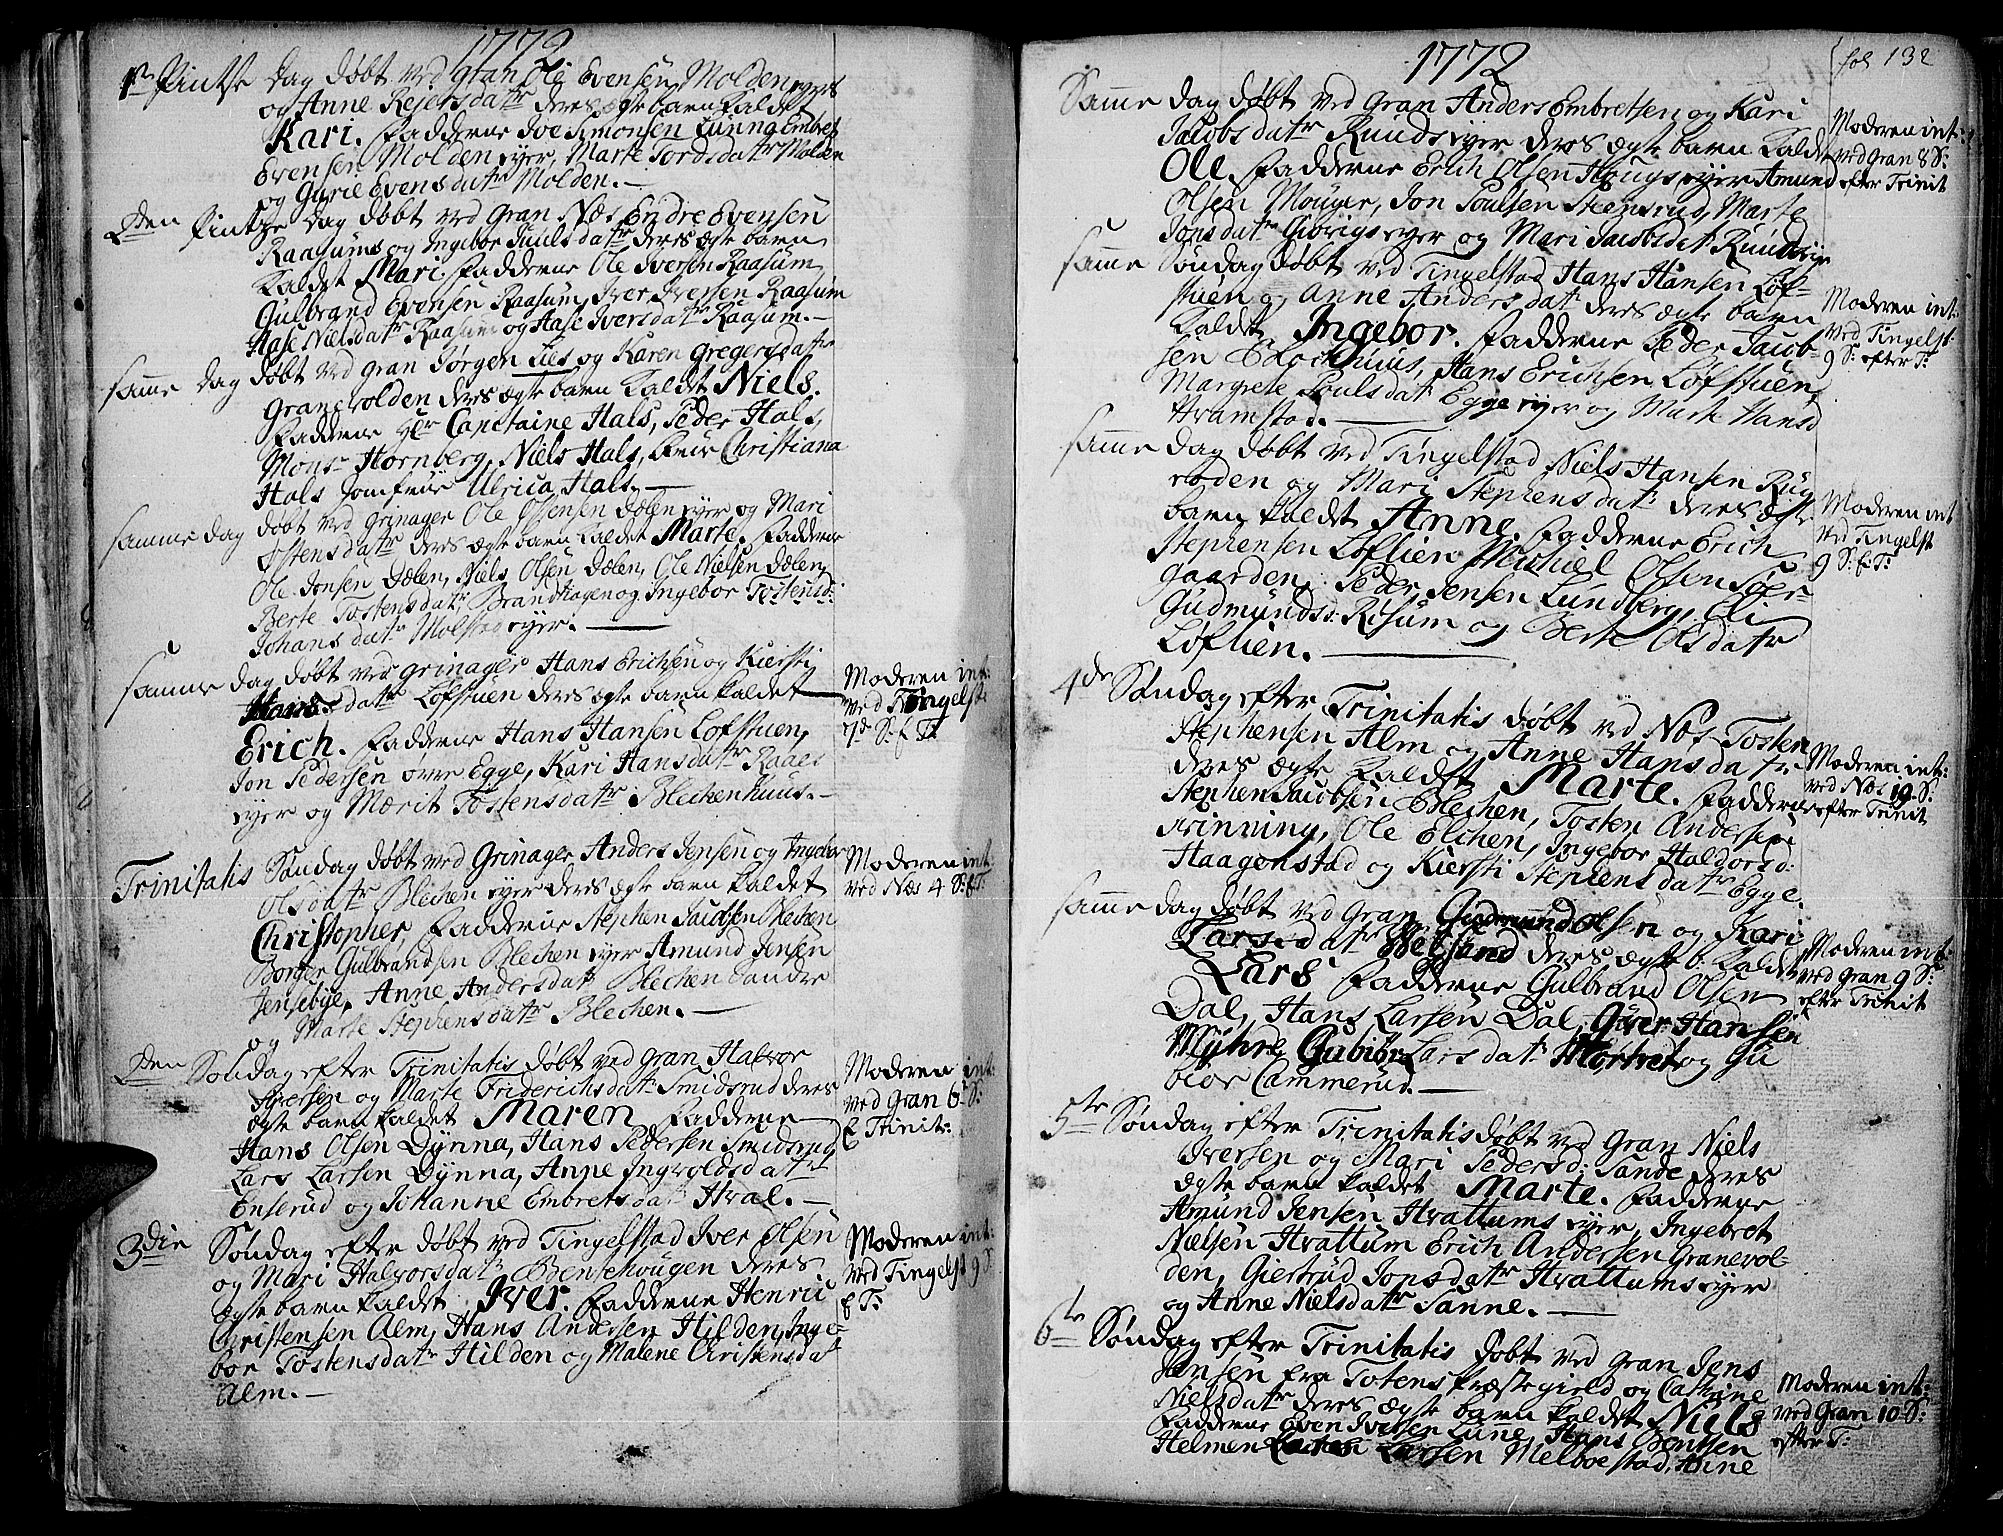 1772
1ste Pintse Dag døbt ved Gran Ole Evensen Molden eyers
og Anne Reiersdatr deres ægte barn kaldet
Kari. Fadderne Joe Simonsen Lunng Embret
Evensen Molden eyer, Marte Tordsdatr Molden
og Gurie Evensdatr Molden.
2den Pintse Dag døbt ved Gran Næs Endre Evensen
Raasums og Ingebor Juulsdatr deres ægte barn
kaldet Mari. Fadderne Ole Iversen Raasum
Gulbrand Evensen Raasum, Iver Iversen Raasum
Aase Nielsdatr Raasum og Aase Iversdatr Raasum.
samme Dag døbt ved Gran Jørgen Lies og Karen Gregersdatr
Granevolden deres ægte barn kaldet Niels.
Fadderne Hr Capitaine Hals, Peder Hals,
Monsr Hornberg, Niels Hals, Frue Christiana
Hals Jomfrue Ulrica Hals.
samme Dag døbt ved Grinager Ole Olsensen Dølen eyer og Mari
Ostensdatr deres ægte barn kaldet Marte. Fadderne
Ole Jonsen Dælen, Niels Olsen Dælen, Ole Nielsen Dælen,
Berte Tostensdatr Brandhagen og Ingebor Tostensd:
Johansdatr Molstad eyer.
samme Dag døbt ved Grinager Hans Erichsen og Kiersti
Hansdatr Løfstuen deres ægte barn kaldet
Erich. Fadderne Hans Hansen Løfstuen,
Jon Pedersen øvre Egge, Kari Hansdatr Raaes
eyer og Mærit Tostensdatr Blechenhuus.
Moderen int:
ved Tingelst:
7de S: E: T:
Trinitatis Søndag døbt ved Grinager Anders Jensen og Ingebor
Olsdatr Blechen eyer deres ægte barn kaldet
Christopher, Fadderne Stephen Jacobsen Blechen
Borger Gulbrandsen Blechen eyer Amund Jensen
Jensebye, Anne Andersdatr Blechen Sandre
og Marte Stephensdatr Blechen.
Moderen int:
ved Næs 4 S: E: T:
2den Søndag efter Trinitatis døbt ved Gran Halvor
Iversen og Marte Friderichsdatr Smidsrud deres
ægte barn kaldet Maren Fadderne
Hans Olsen Dynna, Hans Pedersen Smidsrud
Lars Larsen Dynna, Anne Ingvoldsdatr
Enserud og Johanne Embretsdatr Hval.
Moderen int:
ved Gran 6 S:
E Trinit:
3die Søndag efter døbt ved Tingelstad Iver Olsen
og Mari Halvorsdatr Bensehougen deres
ægte barn kaldet Iver. Fadderne Henric
Christensen Alm, Hans Andersen Hilden, Inge-
bor Tostensdatr Hilden og Malene Christensdat
Alm.
Moderen int:
ved Tingelst 9 S:
E T:
1772
fol 132
Samme Dag døbt ved Gran Anders Embretsen og Kari
Jacobsdatr Ruuds eyer deres ægte barn kaldet
Ole. Fadderne Erich Olsen Hougs eyer Amund
Olsen Mouger, Jon Poulsen Steensrud, Marte
Jonsdatr Giørigs eyer og Mari Jacobsdat Ruuds eyer
Moderen int:
ved Gran 8 S:
efter Trinit
samme Søndag døbt ved Tingelstad Hans Hansen Løf-
stuen og Anne Andersdatr deres ægte barn
kaldet Ingebor. Fadderne Peder Jacob-
sen Blechhuus, Hans Erichsen Løfstuen,
Margrete Poulsdatr Egge eyer og Marte Hansd
Hramstad.
Moderen int:
ved Tingelst:
9 S: efter T:
samme Dag døbt ved Tingelstad Niels Hansen Rug
roden og Mari Stephensdatr deres ægte
barn kaldet Anne. Fadderne Erich
Stephensen Løflien Michiel Olsen Søer-
gaarden, Peder Jensen Lundberg, Eli
Gudmundsd: Risum og Berte Olsdatr
Løflien.
Moderen int
ved Tingelst
9 S: E: T:
4de Søndag efter Trinitatis døbt ved Næs Tosten
Stephensen Alm og Anne Hansdatr
deres ægte kaldet Marte. Fadderne
Stephen Jacobsen Blechen, Tosten Andersen
Frinning, Ole Elchen, Ingebor Haldorsd:
Haagenstad og Kiersti Stephensdatr Egge.
Moderen int:
ved Næs 19 S:
efter Trinit
samme Dag døbt ved Gran Gudmund Olsen og Kari
Larsdatr Helgand deres ægte b. kaldet
Lars Fadderne Gulbrand Olsen
Dal, Hans Larsen Dal, Giver Hansen
Myhre, Gubiør Larsdatr Mortvet og Gu
biør Cammerud.
Moderen int:
ved Gran 9 S:
efter Trinit
5te Søndag efter Trinitatis døbt ved Gran Niels
Iversen og Mari Pedersd: Sande deres
ægte barn kaldet Marte. Fadderne
Amund Jensen Hvattums eyer, Ingebret
Nielsen Hvattum Erich Andersen Granevol-
den, Giertrud Jonsdatr Hvattums eyer
og Anne Nielsdatr Sanne.
6te Søndag efter Trinitatis døbt ved Gran Jens
Jensen fra Totens Præstegield og Cathrine
Nielsdatr deres ægte barn kaldet Niels
Fadderne Even Iversen Lune, Hans Bentsen
Helmen Larsen Melboestad, Anne
Moderen int:
ved Gran 10 S:
efter T: